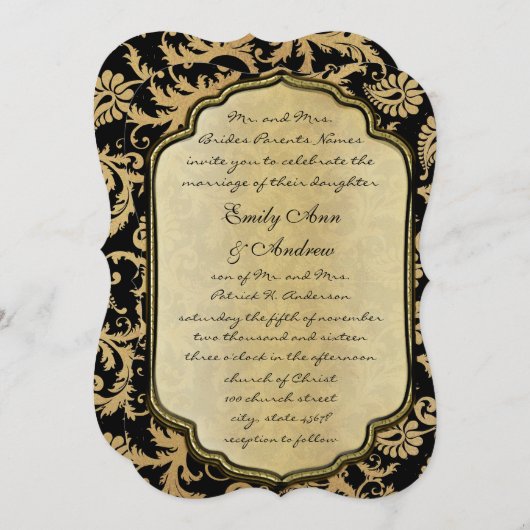 Mr. and Mrs.
Brides Parents Names
invite you to celebrate the
marriage of their daughter
Emily Ann
& Andrew
son of Mr. and Mrs.
Patrick K. Anderson
saturday the fifth of november
two thousand and sixteen
three o'clock in the afternoon
church of Christ
100 church street
city, state 45678
reception to follow